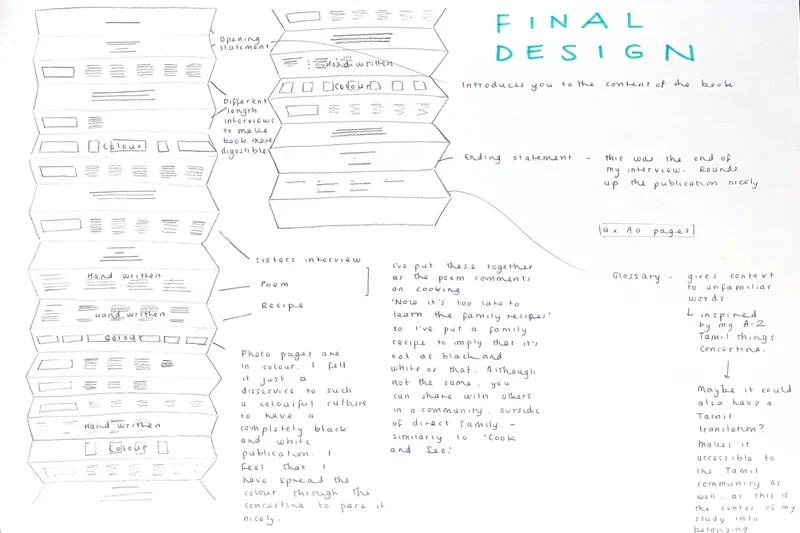 FINAL
DESIGN
Opening
statement
Different
length
interviews
to make
book more
digestible
Colour
Hand written
Colour
Introduces you to the content of the book
Ending statement - this was the end of
my interview. Rounds
up the publication nicely
4x A0 pages
Sisters interview
Poem
Recipe
Hand written
Hand written
Colour
Hand written
Colour
Photo pages are
in colour. I felt
it just a
disservice to such
a colourful culture
to have a
completely black
and white
publication. I
feel that I
have spread the
colour through the
concertina to pare it
nicely.
I've put these together
as the poem comments
on cooking
'Now it's too late to
learn the family recipes'
so I've put a family
recipe to imply that it's
not as black and
white as that. Although
not the same, you
can share with others
in a community, outside
of direct family. -
similarly to 'Cook
and See.'
Glossary - gives context
to unfamiliar
words
inspired
by my A-Z
Tamil things
Concertina.
Maybe it could
also have a
Tamil
translation?
Makes it
accessible to
the Tamil
community as
well, as this is
the center of my
study into
belonging